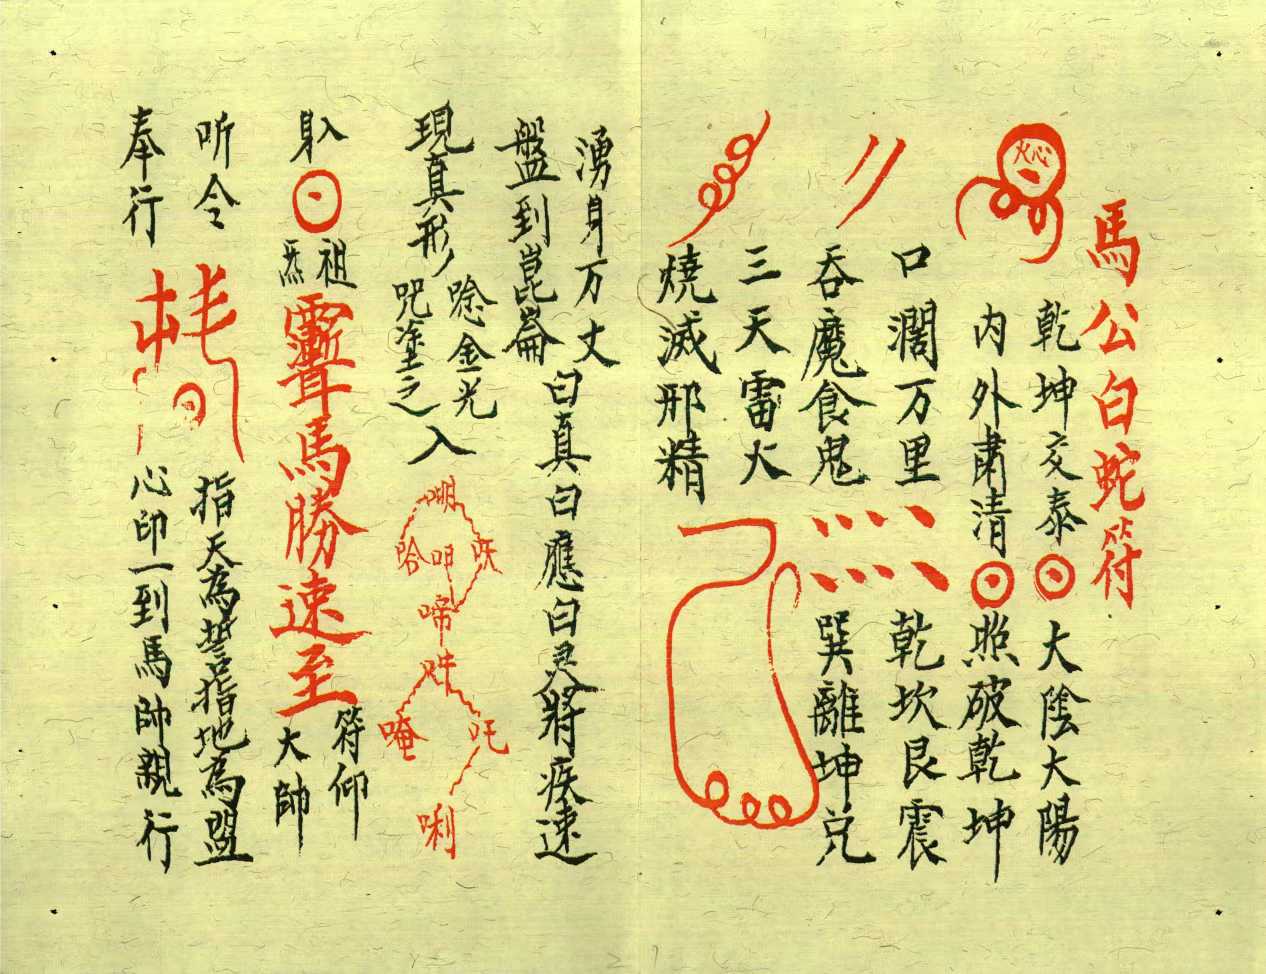 馬公白蛇符
火心
乾坤交泰 大陰大陽
内外肅清 照破乾坤
口濶万里 乾坎艮震
吞魔食鬼 巽離坤兑
三天雷火
燒滅邪精
湧身万丈
盤到崑崙 曰真曰應曰灵將疾速
現真形 唸金光
咒塗之 入
唵 吽 吒 唎
躬入
祖炁
馬勝速至
符仰
大帥
听令 指天為誓指地為盟
奉行 心印一到馬帥親行